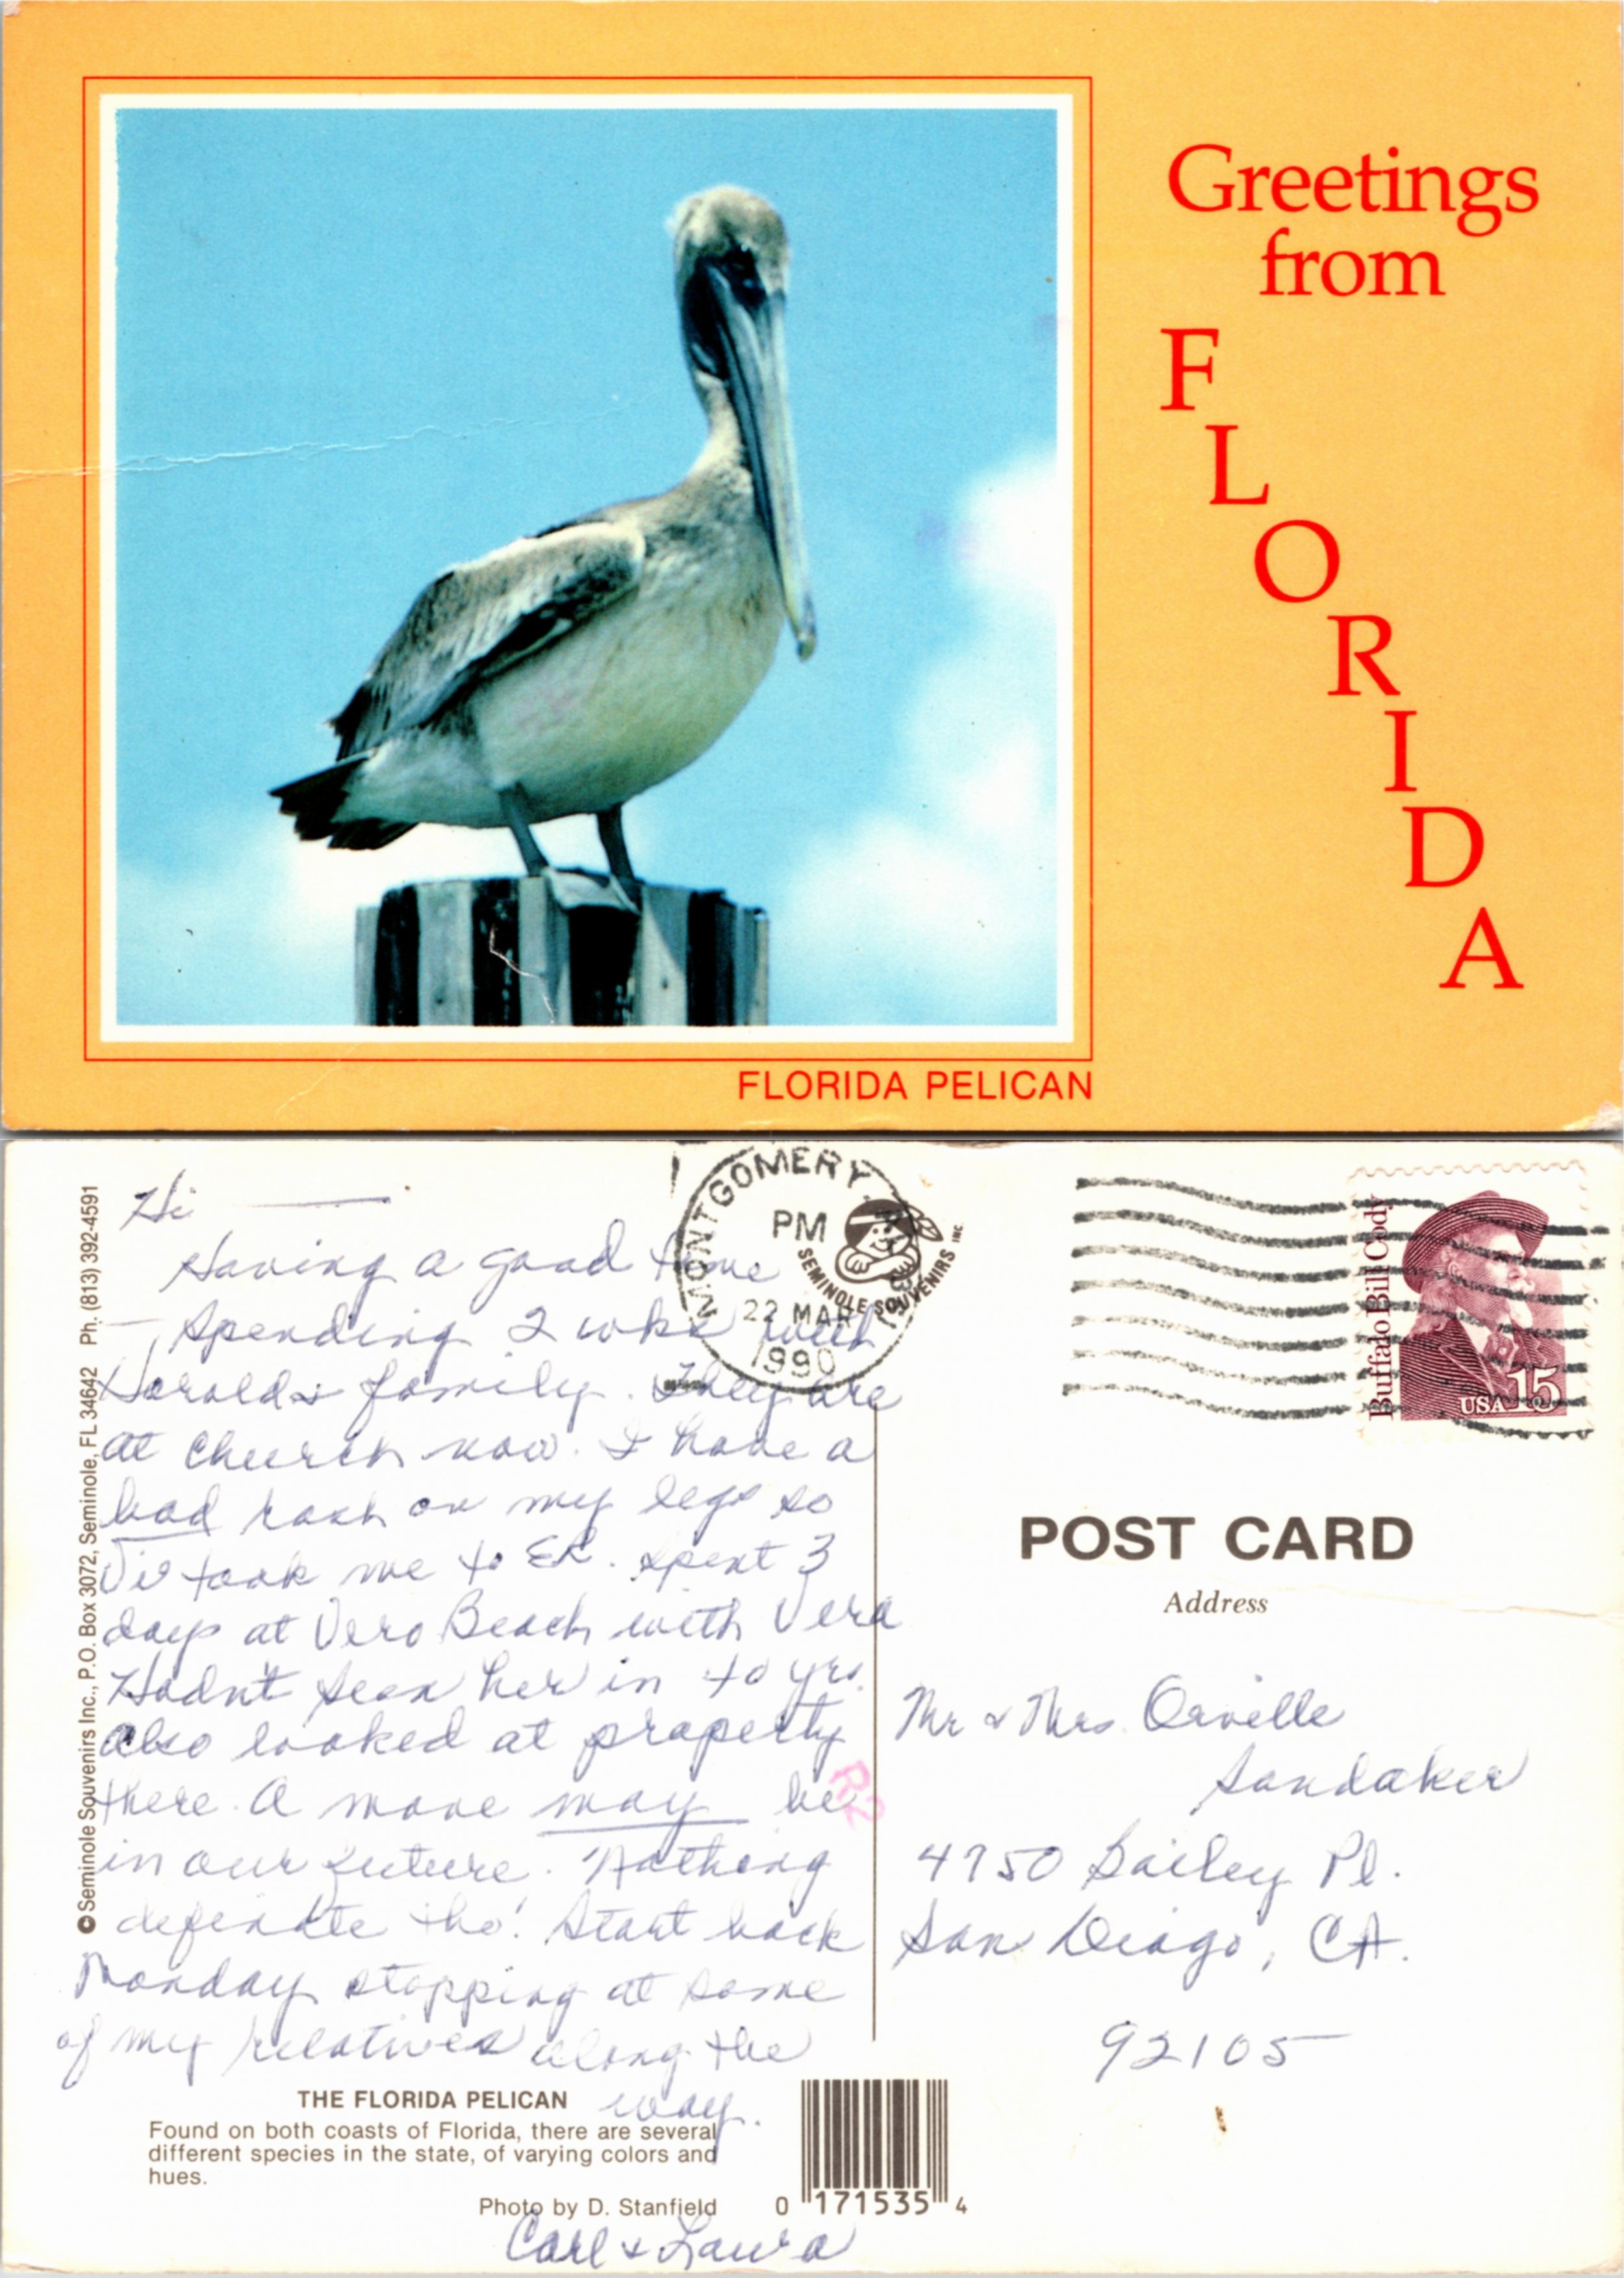 Greetings
from
FLORIDA
FLORIDA PELICAN
© Seminole Souvenirs Inc., P.O. Box 3072, Seminole, FL 34642 Ph. (813) 392-4591
Hi
Having a good time
— spending 2 wks with
Harolds family. They are
at church now. I have a
bad rash on my legs so
took me to ER. spent 3
days at Vero Beach with Vera
Hadn't seen her in 40 yrs.
also looked at property
there. A move may be
in our future. Nothing
definite tho! Start back
Monday stopping at some
of my relatives along the
way.
Carl & Laura
THE FLORIDA PELICAN
Found on both coasts of Florida, there are several
different species in the state, of varying colors and
hues.
Photo by D. Stanfield
0 171535 4
MONTGOMERY,
PM
22 MAR
1990
SEMINOLE SOUVENIRS INC.
Buffalo Bill Cody
USA 15
POST CARD
Address
Mr & Mrs. Orville
Sandaker
4750 Bailey Pl.
San Diego, CA.
92105
R2